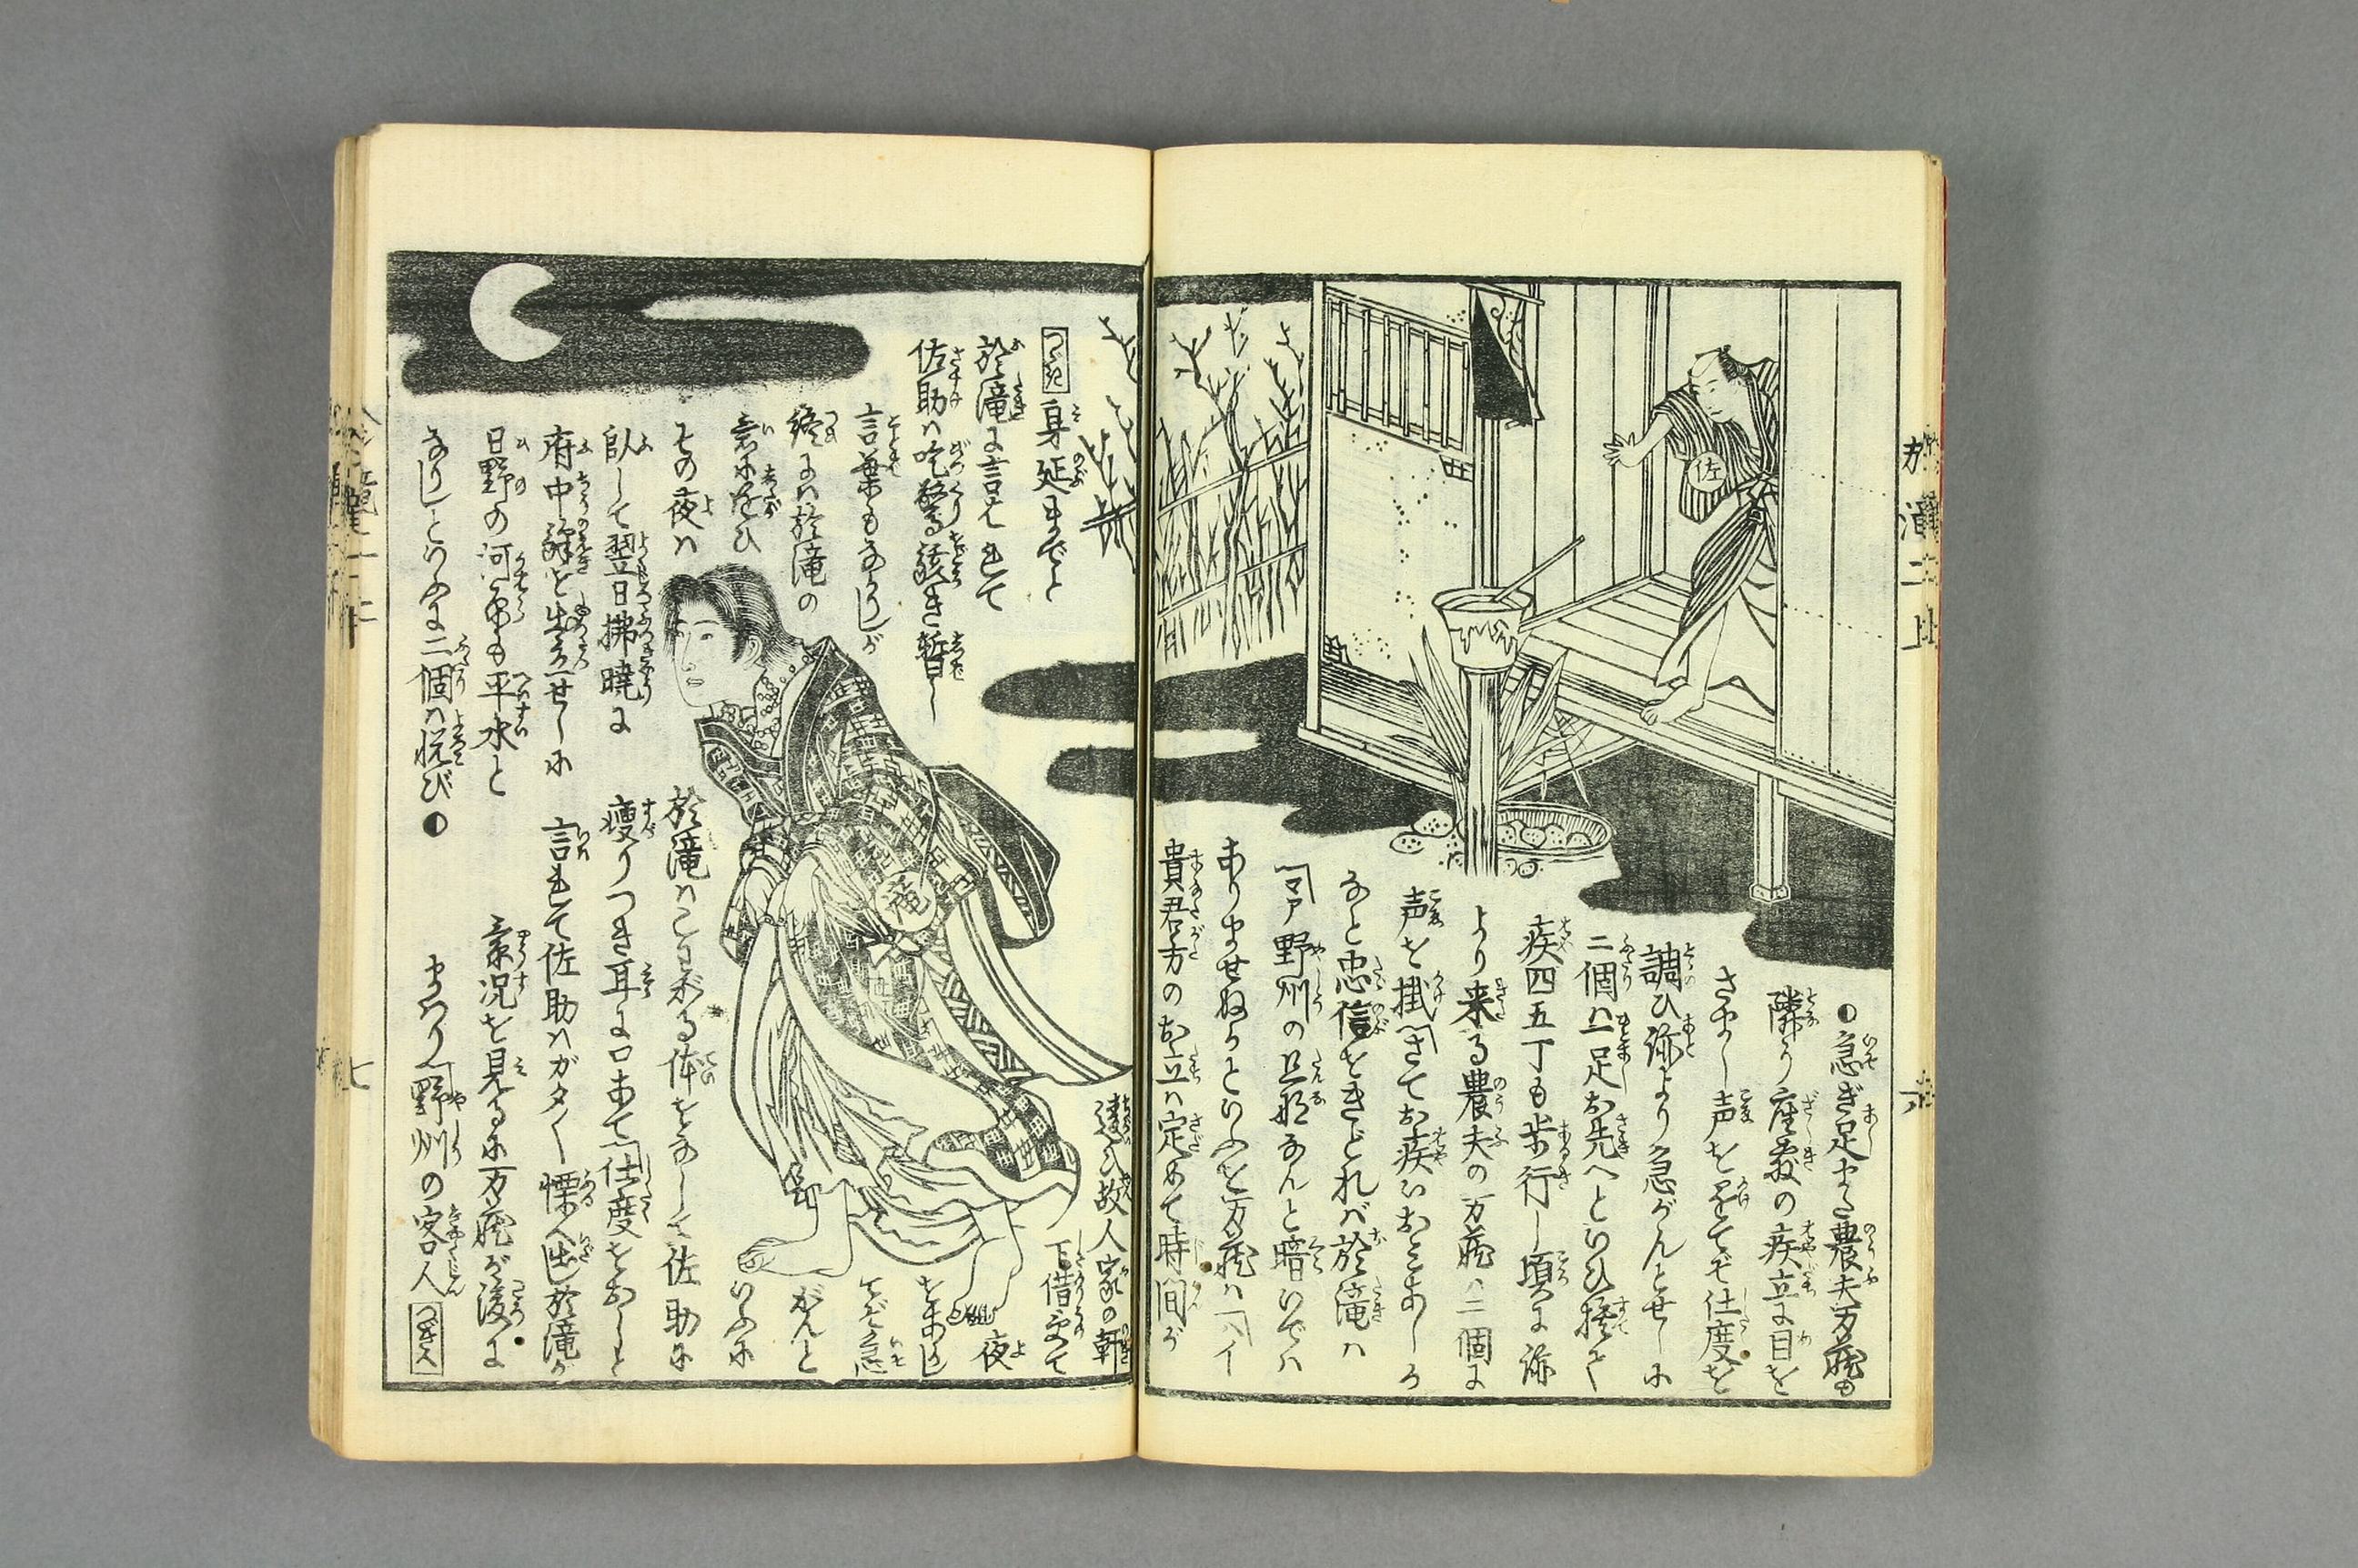 つゞき 身延までと
於滝に言はれて
佐助ハ吃驚駭き暫し
言葉もなかりしが
終にハ於滝の
意に随ひ
その夜ハ
臥して翌日拂暁に
府中駅を出立せしに
日野の河原も平水と
なりしといふに二個ハ悦び◐
◐急ぎ足また農夫万蔵も
隣り座敷の疾立に目を
さまし声をかけてぞ仕度を
調ひ弥より急がんとせしに
二個ハ一足お先へといひ捨て
疾四五丁も歩行し頃に弥
より来る農夫の万蔵ハ二個に
声を掛「さてお疾いおみあしか
なと忠信をきどれバ於滝ハ
「マア野州の旦那なんと暗いでハ
ありませぬかといふを万蔵ハ「ハイ
貴君方のお立ハ定めて時間が
違ひ故人家の軒
下借受て
夜
をあかし
てぞ急
がんと
いふに
於滝ハこはがる体をなして佐助に
痩りつき耳に口あて「仕度をおしと
言れて佐助ハガタ〳〵慄へ出し於滝が
景況を見るに万蔵が後に
まはり「野州の客人 つぎへ
佐
滝
於滝二上
六
七